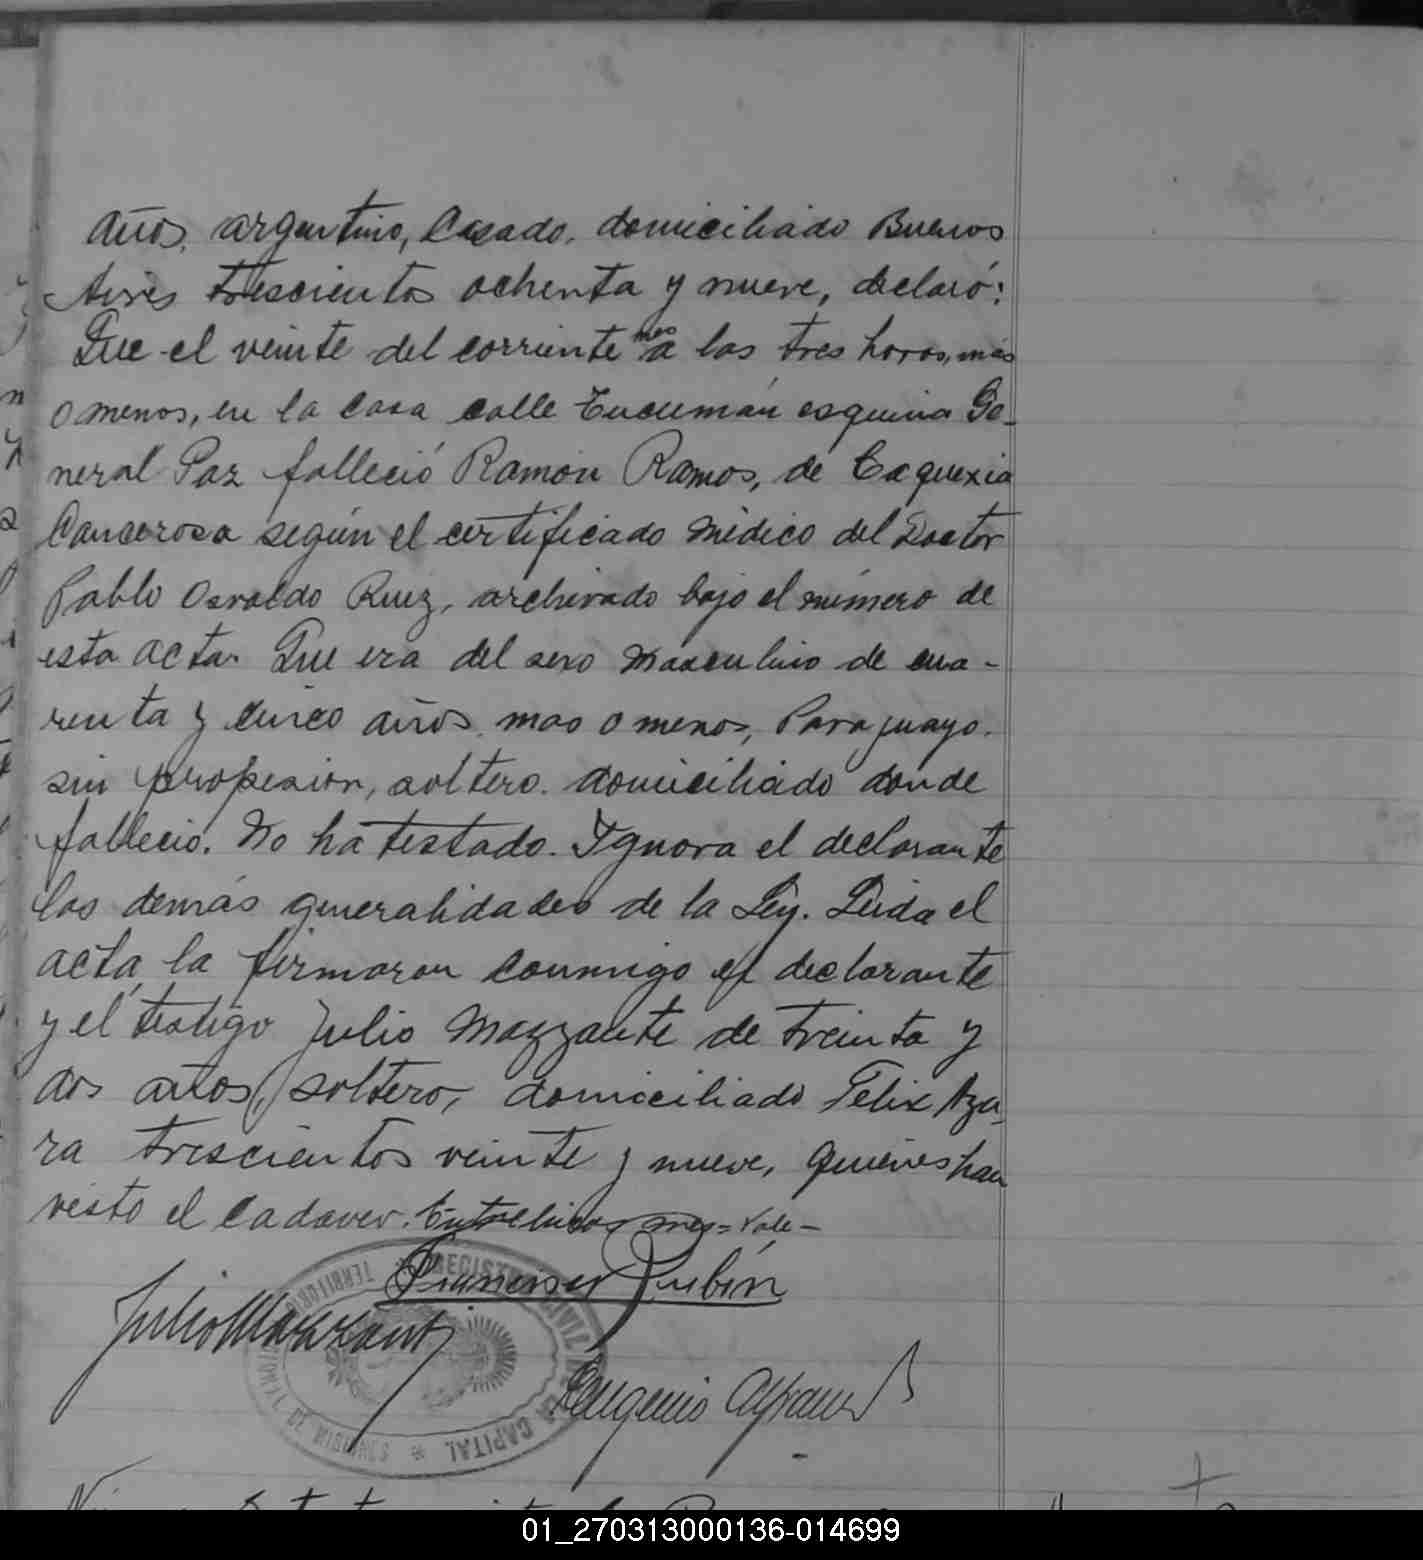 años, argentino, Casado, domiciliado Buenos
Aires trescientos ochenta y nueve, declaró:
Que el veinte del corriente mes a las tres horas, más
o menos, en la casa calle Tucumán esquina Ge-
neral Paz falleció Ramón Ramos, de Caquexia
Cancerosa según el certificado médico del Doctor
Pablo Osvaldo Ruiz, archivado bajo el número de
esta acta. Que era del sexo masculino de cua-
renta y cinco años, mas o menos, Paraguayo.
sin profesion, soltero. domiciliado donde
fallecio. No ha testado. Ignora el declarante
las demás generalidades de la Ley. Leida el
acta, la firmaron conmigo el declarante
y el testigo Julio Mazzante de treinta y
dos años, soltero, domiciliado Felix Aza-
ra trescientos veinte y nueve, quienes han
visto el cadaver. Entrelineas mes = Vale -
Rubín
Julio Mazzanti
REGISTRO CIVIL DE LA CAPITAL * TERRITORIO DE MISIONES
Eugenio
01_270313000136-014699